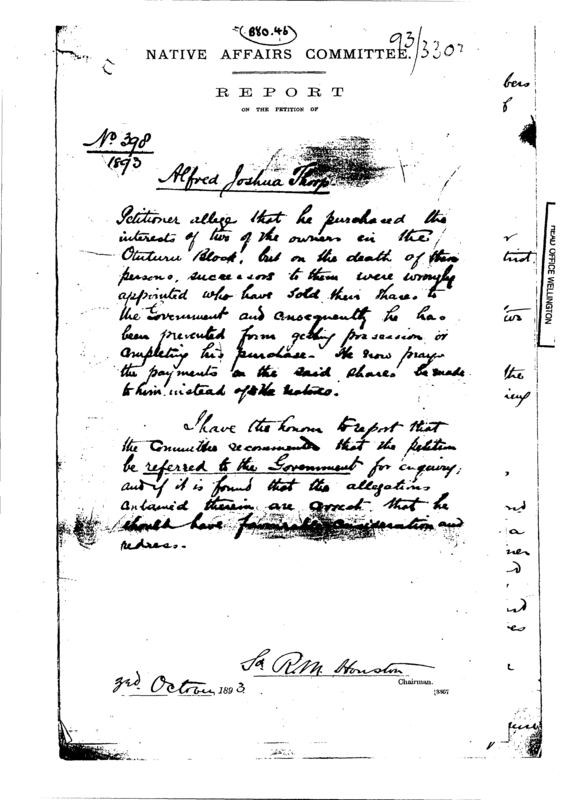 (880.46)
93/3307
NATIVE AFFAIRS COMMITTEE.
REPORT
ON THE PETITION OF
No 398
1893
Alfred Joshua Thorp
Petitioner alleges that he purchased the
interests of two of the owners in the
Block, but on the death of these
persons, successors to them were wrongly
appointed who have sold their shares to
the Government and consequently he has
been prevented from getting possession or
completing his purchase. He now prays
the payments on the said shares be made
to him instead of the natives.
I have the honour to report that
the Committee recommends that the petition
be referred to the Government for enquiry;
and if it is found that the allegations
contained therein are correct that he
should have favourable consideration and
redress.
Sd R.M. Houston
Chairman.
3rd October 1893.
HEAD OFFICE WELLINGTON
bers
of
trict
the
a